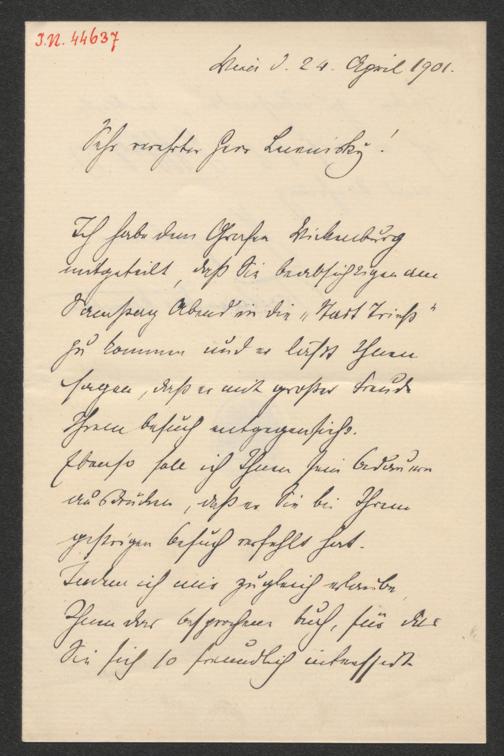 J.N. 44637
Wien d. 24. April 1901.
Sehr verehrter Herr Lucnisky!
Ich habe dem Grafen Wickenburg
mitgeteilt, daß Sie beabsichtigen am
Samstag Abend in die „Stadt Triest“
zu kommen und er läßt Ihnen
sagen, daß er mit großer Freude
Ihrem Besuch entgegensieht.
Ebenso soll ich Ihnen sein Bedauern
ausdrücken, daß er Sie bei Ihrem
gestrigen Besuch verfehlt hat.
Indem ich mir zugleich erlaube
Ihnen das besprochene Buch, für das
Sie sich so freundlich interessirt